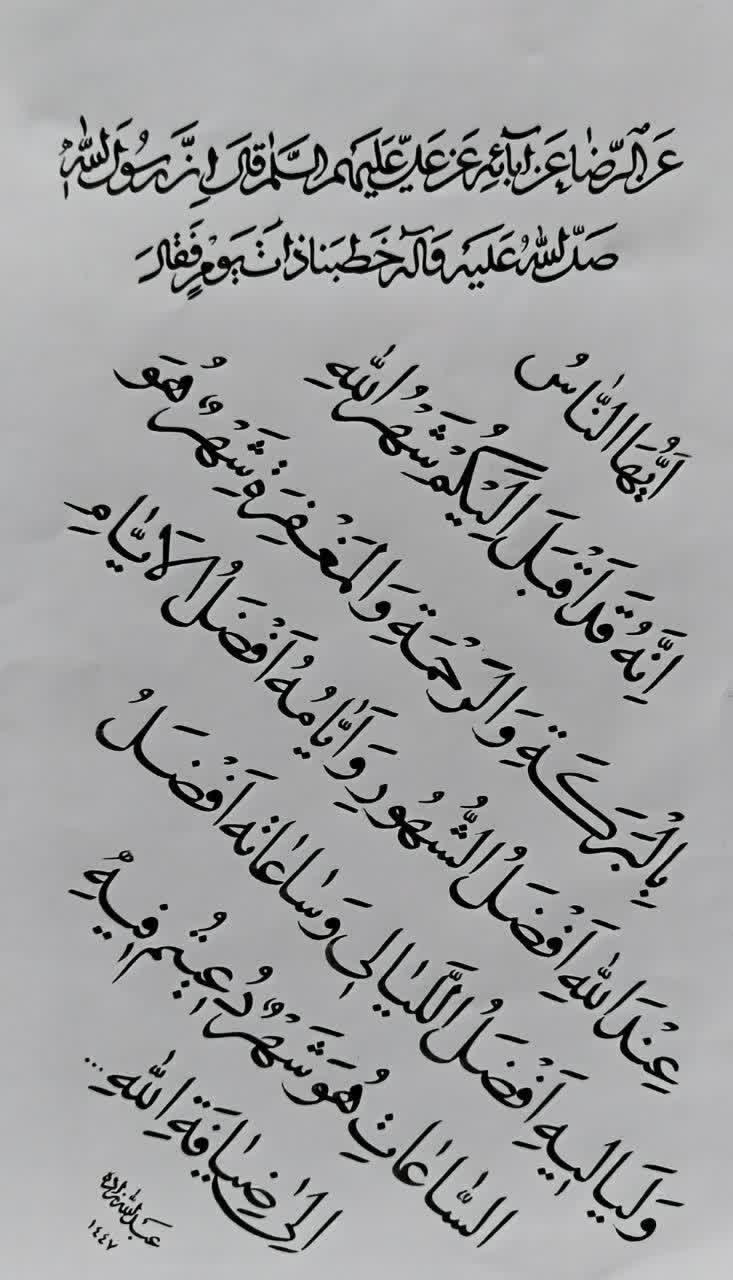 عَنِ الرِّضَا عَنْ آبَائِهِ عَنْ عَلِيٍّ عَلَيْهِمُ السَّلَامُ قَالَ اِنَّ رَسُولَ اللهِ
صَلَّى اللهُ عَلَيْهِ وَآلِهِ خَطَبَنَا ذَاتَ يَوْمٍ فَقَالَ
اَيُّهَا النَّاسُ
اِنَّهُ قَدْ اَقْبَلَ اِلَيْكُمْ شَهْرُ اللهِ
بِالْبَرَكَةِ وَالرَّحْمَةِ وَالْمَغْفِرَةِ شَهْرٌ هُوَ
عِنْدَ اللهِ اَفْضَلُ الشُّهُورِ وَاَيَّامُهُ اَفْضَلُ الْاَيَّامِ
وَلَيَالِيهِ اَفْضَلُ اللَّيَالِي وَسَاعَاتُهُ اَفْضَلُ
السَّاعَاتِ هُوَ شَهْرٌ دُعِيتُمْ فِيهِ
اِلَى ضِيَافَةِ اللهِ...
عبدالله زاده
١٤٤٧